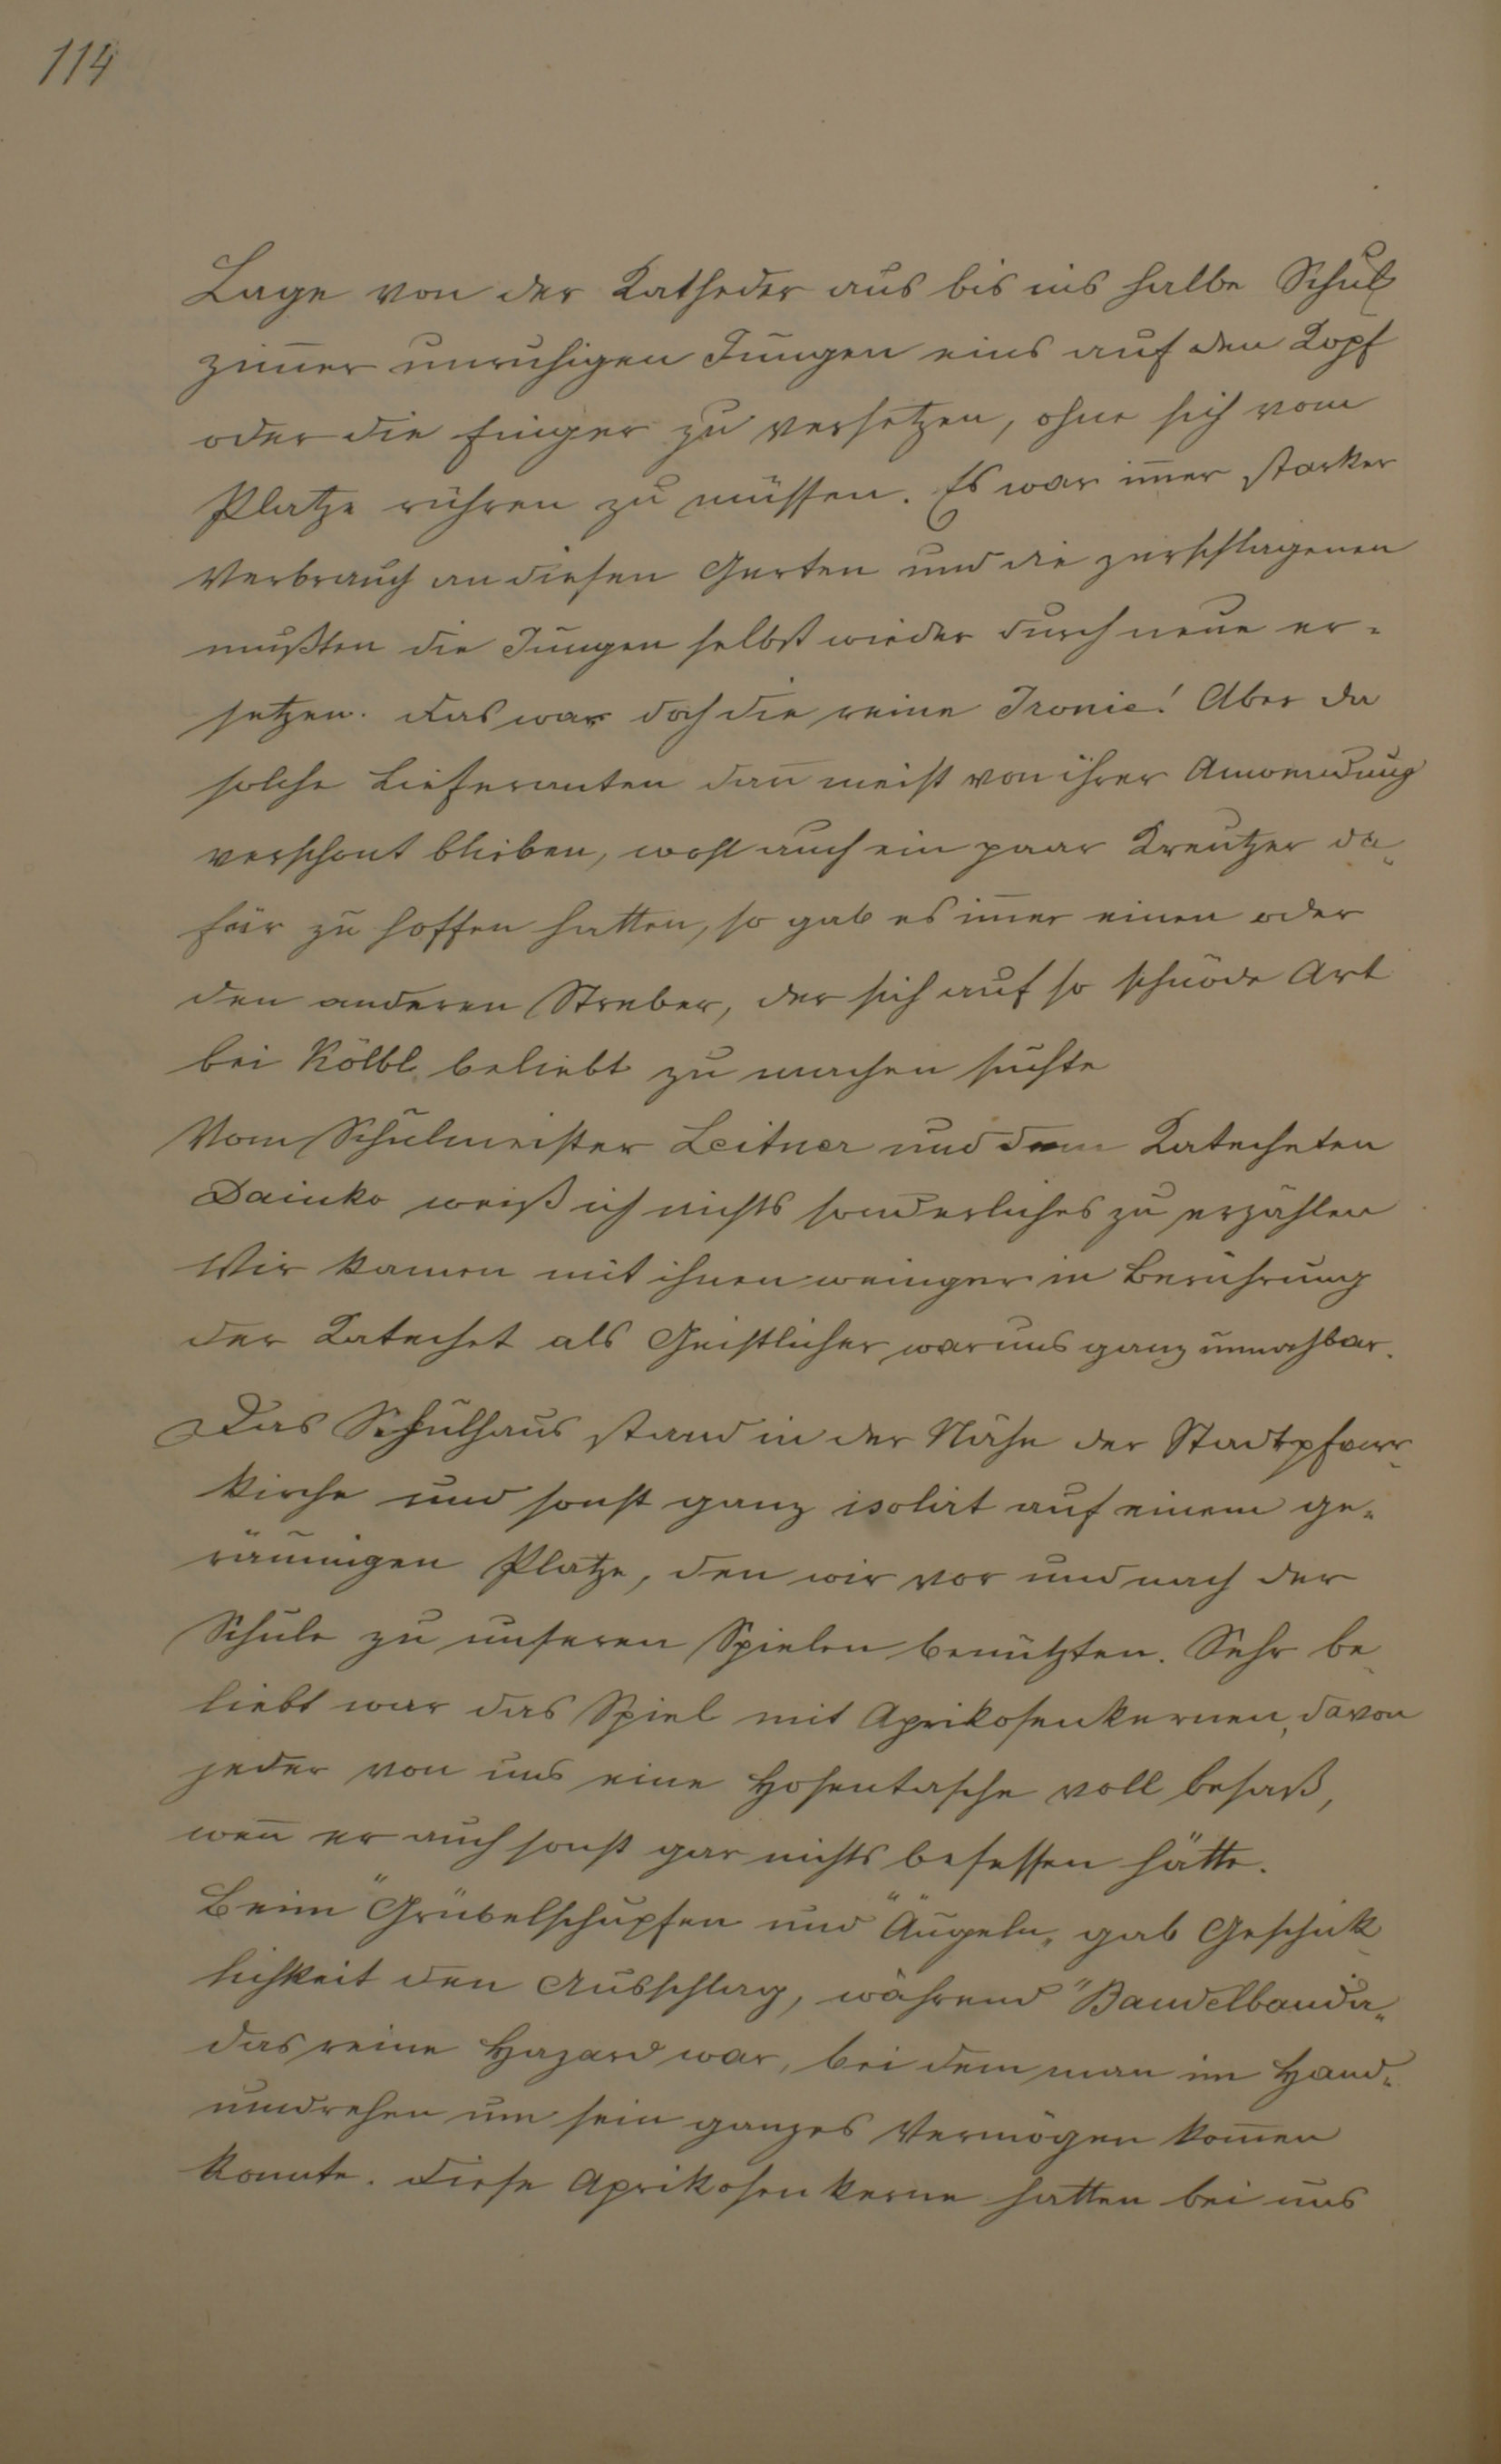 114
Lage von der Katheder aus bis ins halbe Schul
zim̅er unruhigen Jungen eins auf den Kopf
oder die Finger zu versetzen, ohne sich vom
Platze rühren zu müssen. Es war im̅er starker
Verbrauch an diesen Gerten und die zerschlagenen
mußten die Jungen selbst wieder durch neue er-
setzen. Das war doch die reine Ironie! Aber da
solche Lieferanten dan̅ meist von ihrer Anwendung
verschont blieben, wohl auch ein paar Kreutzer da-
für zu hoffen hatten, so gab es im̅er einen oder
den anderen Streber, der sich auf so schnöde Art
bei Kölbl beliebt zu machen suchte
Vom Schulmeister Leitner und dem Katecheten
Dainko weiß ich nichts sonderliches zu erzählen
Wir kamen mit ihnen weniger in Berührung
der Katechet als Geistlicher war uns ganz unnahbar.
Das Schulhaus stand in der Nähe der Stadtpfarr-
kirche und sonst ganz isolirt auf einem ge-
räumigen Platze, den wir vor und nach der
Schule zu unseren Spielen benützten. Sehr be-
liebt war das Spiel mit Aprikosenkernen, davon
jeder von uns eine Hosentasche voll besaß,
wen̅ er auch sonst gar nichts besessen hätte.
Beim "Grübelschupfen und "Äugeln„ gab Geschick-
lichkeit den Ausschlag, während "Bandelbandia„
das reine Hazard war, bei dem man im Hand-
umdrehen um sein ganzes Vermögen kom̅en
konnte. Diese Aprikosenkerne hatten bei uns